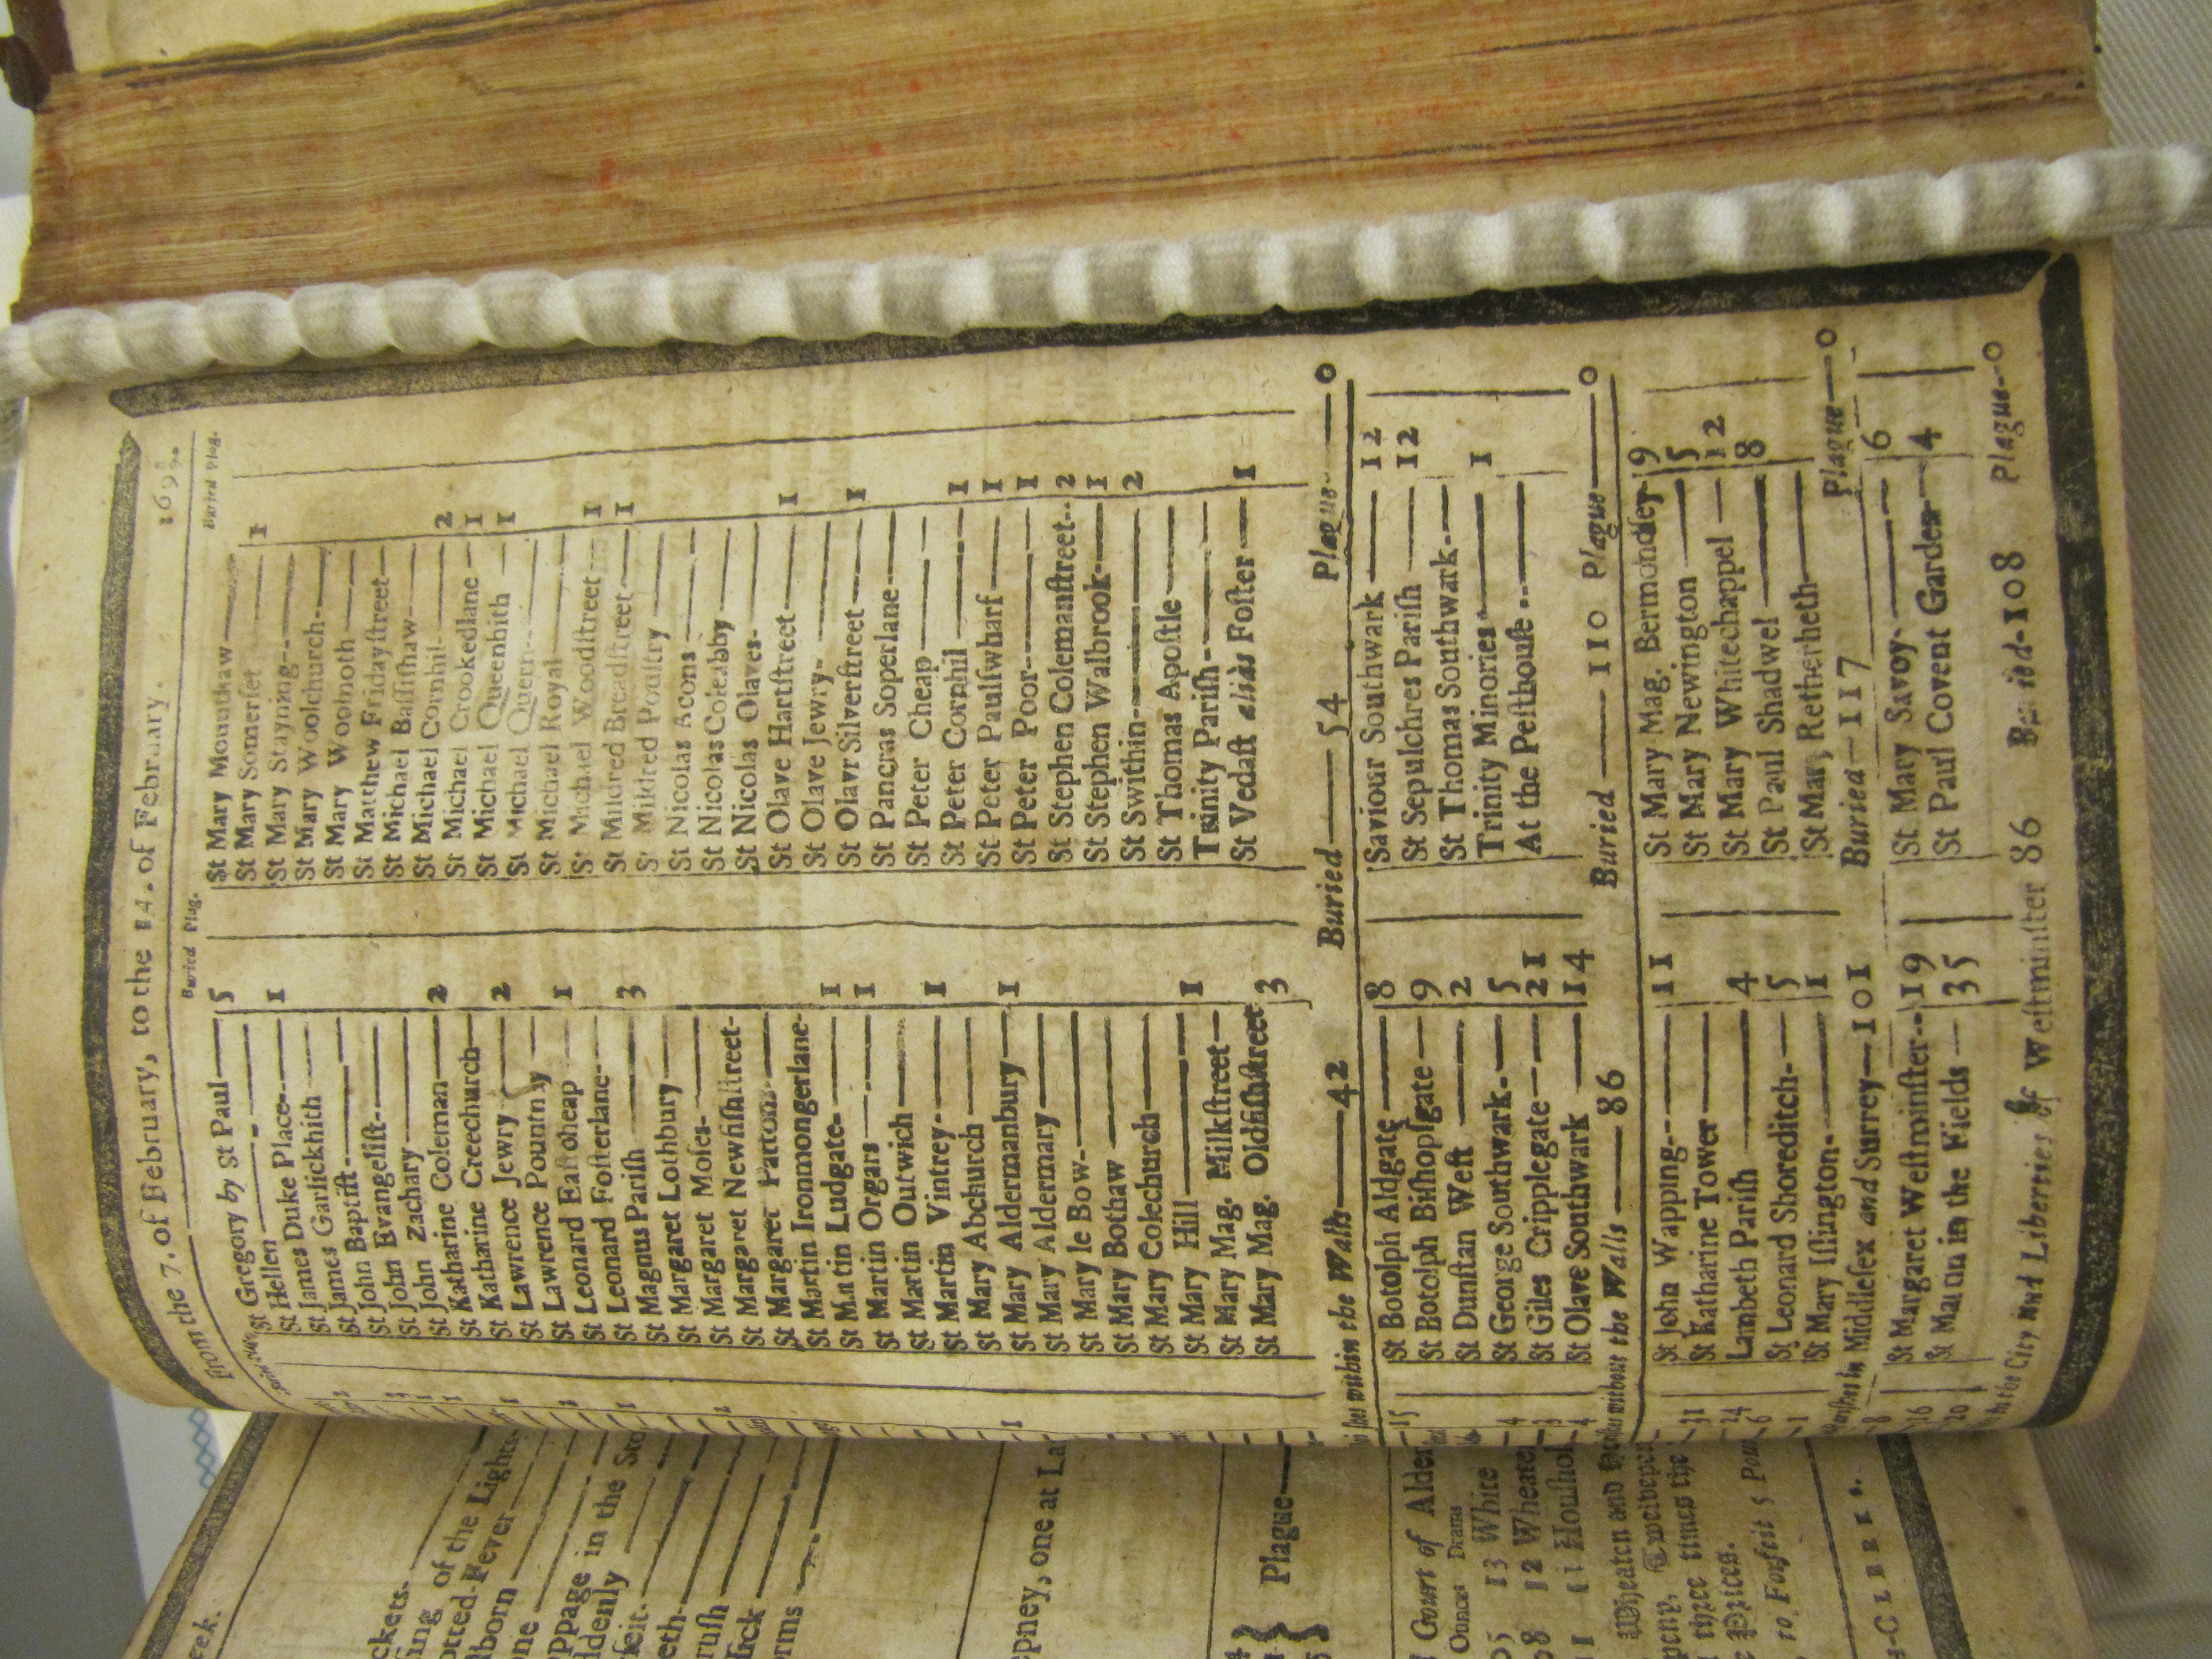 From the 7. of February, to the 14. of February. 1698.
Buried Plag.
Buried Plag.
St Gregory by St Paul 5
St Hellen
St James Duke Place 1
St James Garlickhith
St John Baptist
St John Evangelist
St John Zachary
St Katharine Coleman 2
St Katharine Creechurch
St Lawrence Jewry 2
St Lawrence Pountny
St Leonard Eastcheap 1
St Leonard Fosterlane
St Magnus Parish 3
St Margaret Lothbury
St Margaret Moses
St Margaret Newfishstreet
St Margaret Pattons
St Martin Ironmongerlane
St Martin Ludgate 1
St Martin Orgars 1
St Martin Outwich
St Martin Vintrey 1
St Mary Abchurch
St Mary Aldermanbury 1
St Mary Aldermary
St Mary le Bow
St Mary Bothaw
St Mary Colechurch
St Mary Hill 1
St Mary Mag. Milkstreet
St Mary Mag. Oldfishstreet 3
St Mary Mounthaw
St Mary Somerset 1
St Mary Stayning
St Mary Woolchurch
St Mary Woolnoth
St Matthew Fridaystreet
St Michael Bassishaw
St Michael Cornhil 2
St Michael Crookedlane 1
St Michael Queenhith 1
St Michael Quern
St Michael Royal
St Michael Woodstreet 1
St Mildred Breadstreet 1
St Mildred Poultry
St Nicolas Acons
St Nicolas Coleabby
St Nicolas Olaves
St Olave Hartstreet 1
St Olave Jewry
St Olave Silverstreet 1
St Pancras Soperlane
St Peter Cheap
St Peter Cornhil 1
St Peter Paulswharf 1
St Peter Poor 1
St Stephen Colemanstreet 2
St Stephen Walbrook 1
St Swithin 2
St Thomas Apostle
Trinity Parish
St Vedast aliàs Foster 1
within the Walls 42 Buried 54 Plague 0
15
St Botolph Aldgate 8
St Botolph Bishopsgate 9
St Dunstan West 2
4 St George Southwark 5
3 St Giles Cripplegate 21
4 St Olave Southwark 14
Saviour Southwark 12
St Sepulchres Parish 12
St Thomas Southwark
Trinity Minories 1
At the Pesthouse
without the Walls 86 Buried 110 Plague 0
31 St John Wapping 11
24 St Katharine Tower
6 Lambeth Parish 4
St Leonard Shoreditch 5
1 St Mary Islington 1
St Mary Mag. Bermondsey 9
St Mary Newington 5
St Mary Whitechappel 12
St Paul Shadwel 8
St Mary Retherheth
in Middlesex and Surrey 101 Buried 117 Plague 0
16 St Margaret Westminster 19
20 St Martin in the Fields 35
St Mary Savoy 6
St Paul Covent Garden 4
the City and Liberties of Westminster 86 Buried 108 Plague 0
ckets.
sing of the Lights
otted-Fever
lborn
one
oppage in the Sto
ddenly
rfeit
eeth
rush
sick
orms
pney, one at La
Plague
Court of Alder
Ounces Drams
13 White
12 Wheaten
11 Houshol
Wheaten and
three times the
Prices.
to Forfeit 5 Pou